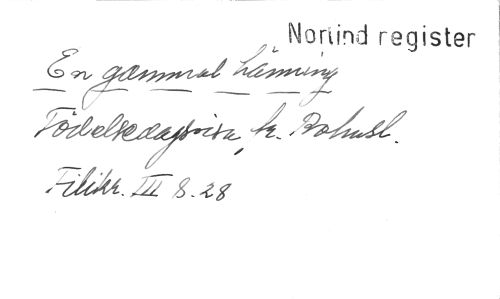 Norlind register
En gammal hänning
Födelsedagsvisa, fr. Bohusl.
Filikr. III s. 28